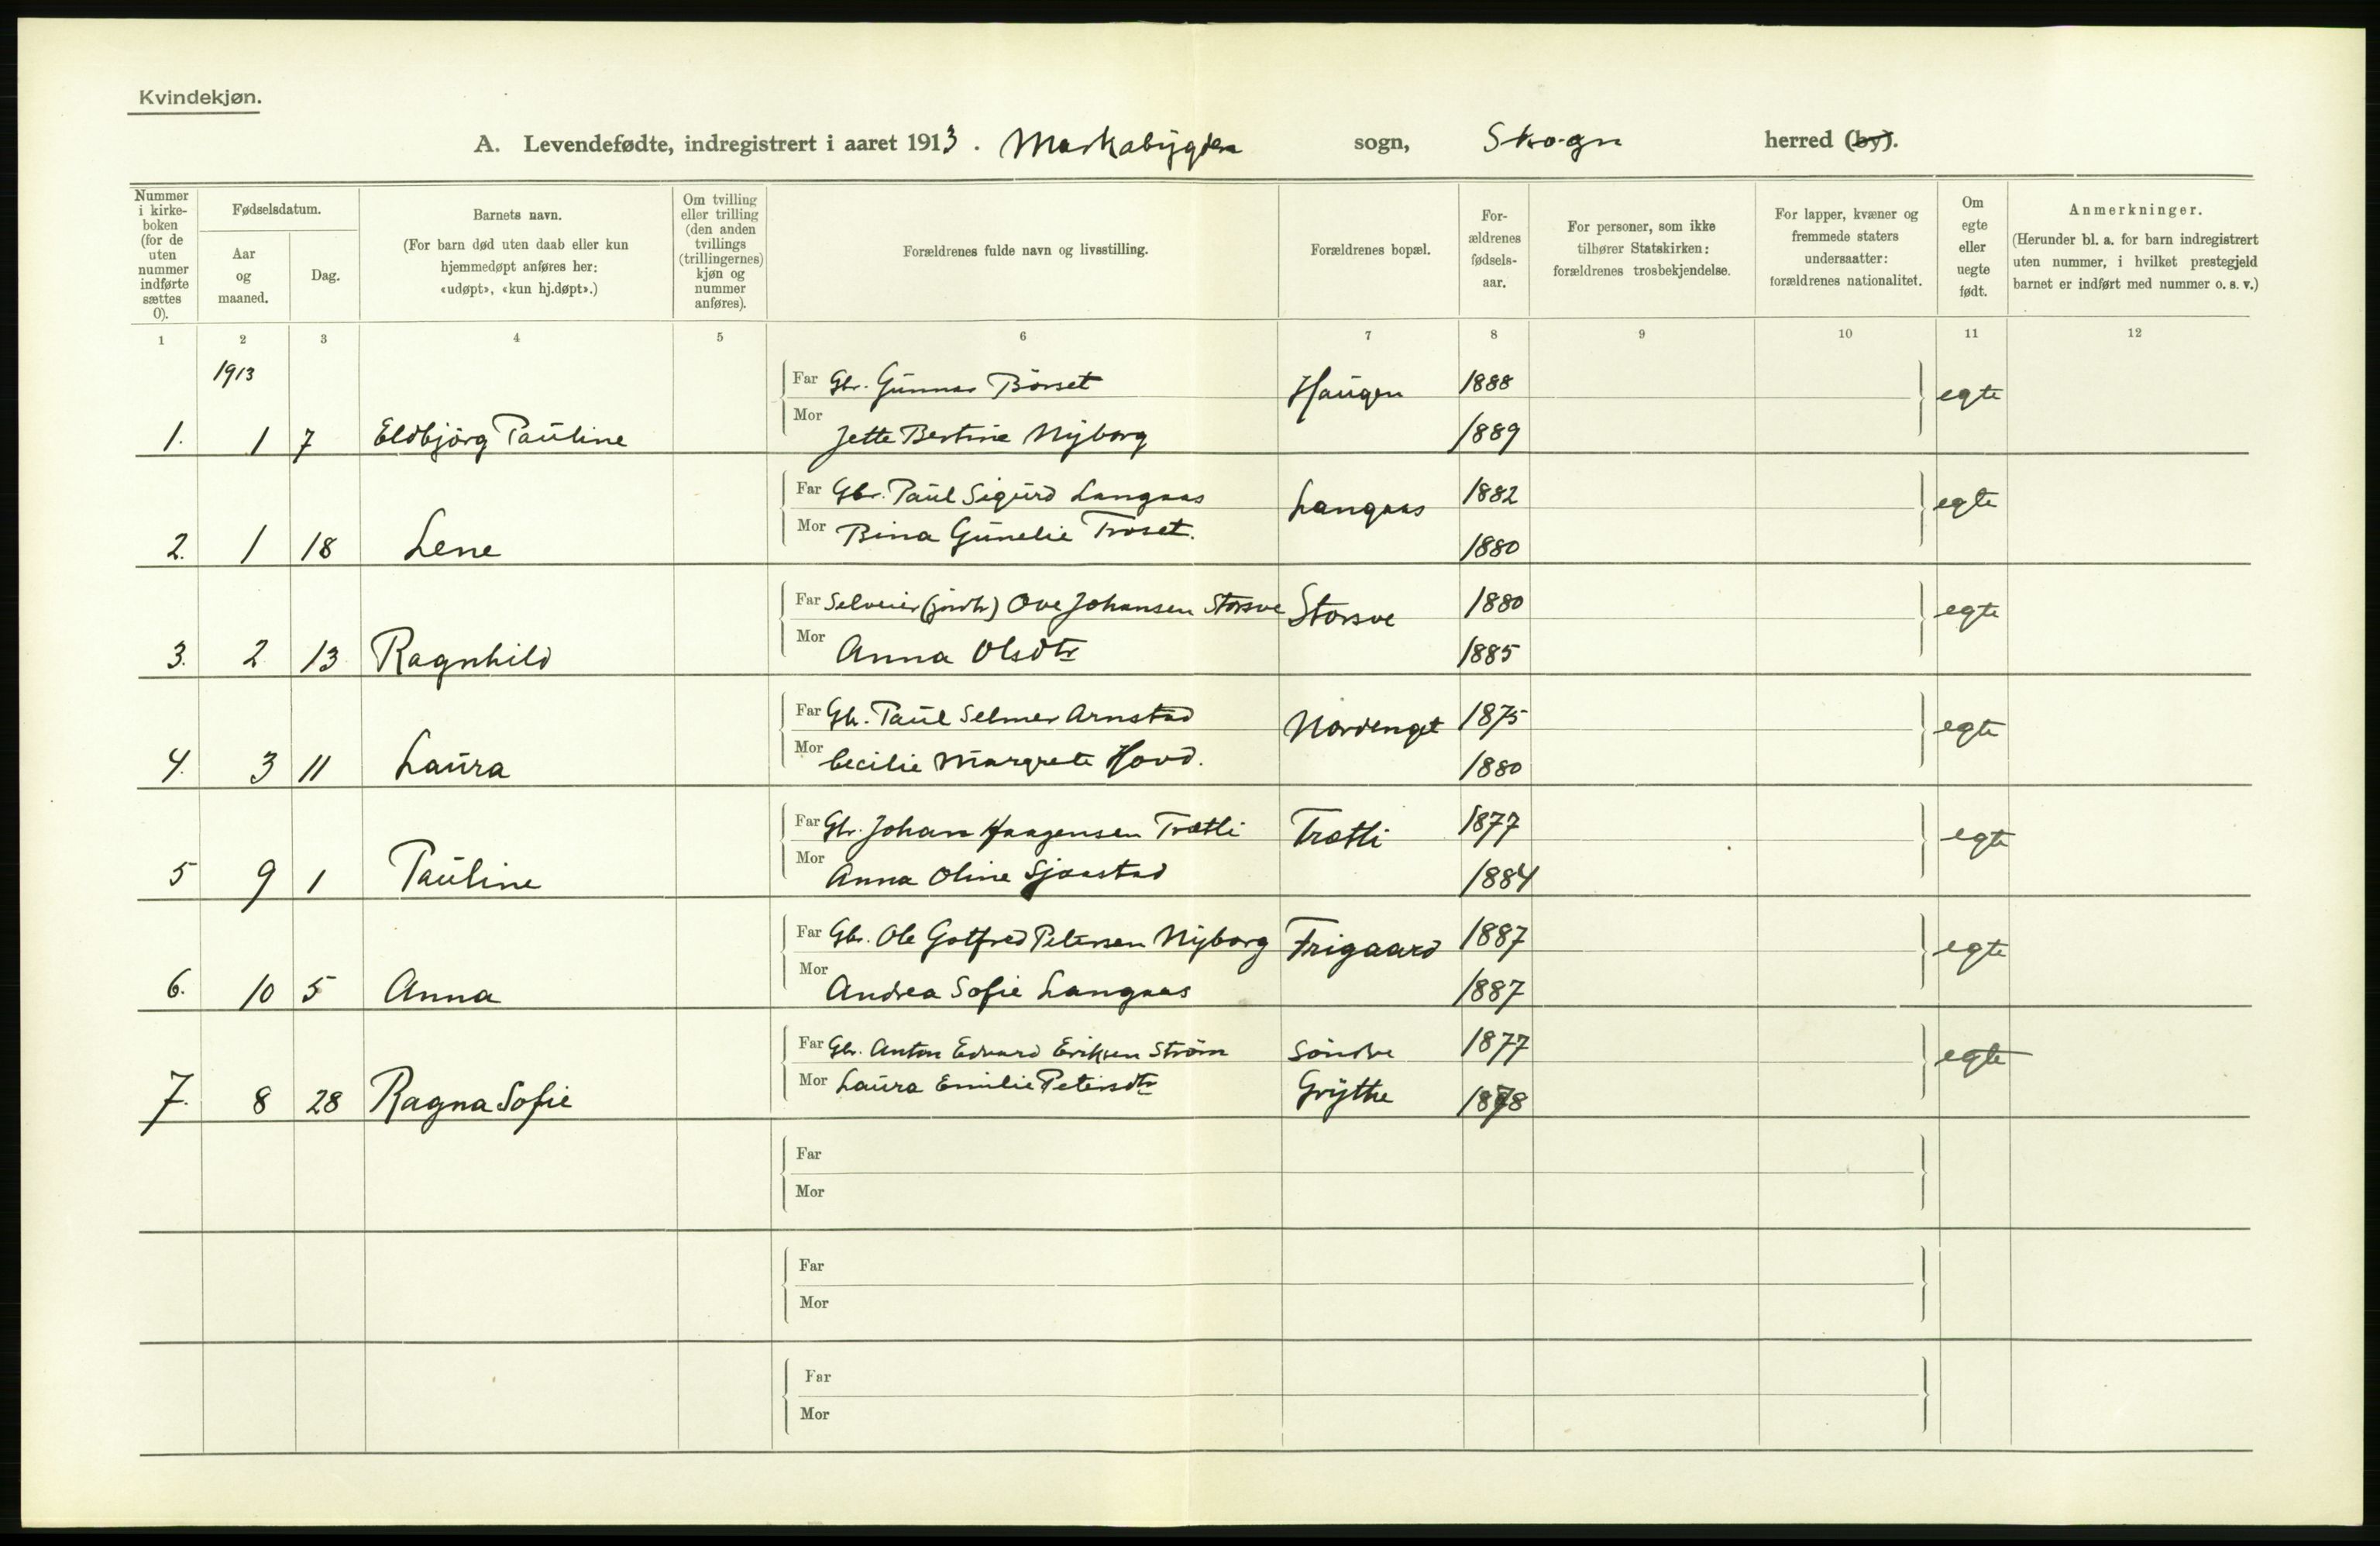 Kvindekjøn.
A. Levendefødte, indregistrert i aaret 1913. Markabygden sogn, Skogn herred (by).
Nummer i kirke-boken (for de uten nummer indførte sættes 0).
Fødselsdatum.
Aar og maaned.
Dag.
Barnets navn.
(For barn død uten daab eller kun hjemmedøpt anføres her: «udøpt», «kun hj.døpt».)
Om tvilling eller trilling (den anden tvillings (trillingernes) kjøn og nummer anføres).
Forældrenes fulde navn og livsstilling.
Forældrenes bopæl.
For-ældrenes fødsels-aar.
For personer, som ikke tilhører Statskirken: forældrenes trosbekjendelse.
For lapper, kvæner og fremmede staters undersaatter: forældrenes nationalitet.
Om egte eller uegte født.
Anmerkninger.
(Herunder bl. a. for barn indregistrert uten nummer, i hvilket prestegjeld barnet er indført med nummer o. s. v.)
1 2 3 4 5 6 7 8 9 10 11 12
1913
Far Gbr. Gunnar Börset Haugen 1888 egte
1. 1 7 Eldbjörg Pauline Mor Jette Bertine Nyborg 1889
Far Gbr. Paul Sigurd Langaas Langaas 1882 egte
2. 1 18 Lene Mor Bina Gunelie Troset. 1880
Far Selveier (jordb) Ove Johansen Storsve Storsve 1880 egte
3. 2 13 Ragnhild Mor Anna Olsdtr 1885
Far Gb. Paul Selmer Arnstad Nordenget 1875 egte
4. 3 11 Laura Mor Cecilie Margrete Hovd. 1880
Far Gbr. Johan Haagensen Trætli Trætli 1877 egte
5 9 1 Pauline Mor Anna Oline Sjaastad 1884
Far Gbr. Ole Gotfred Petersen Nyborg Frigaard 1887 egte
6. 10 5 Anna Mor Andrea Sofie Langaas 1887
Far Gbr. Anton Edvard Eriksen Ström Söndre 1877 egte
7. 8 28 Ragna Sofie Mor Laura Emilie Petersdtr Grÿthe 1878
Far
Mor
Far
Mor
Far
Mor